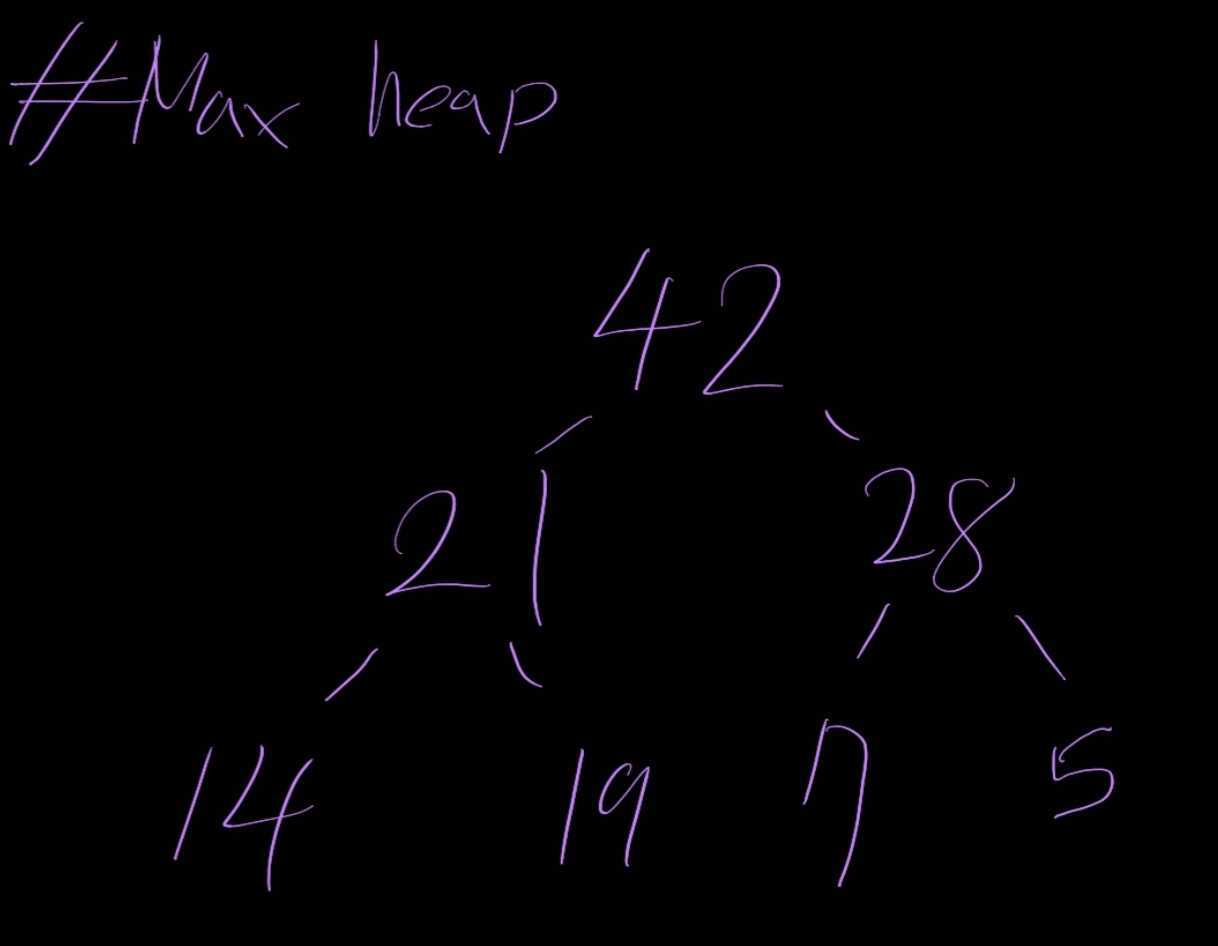 #Max heap
42
21 28
14 19 7 5